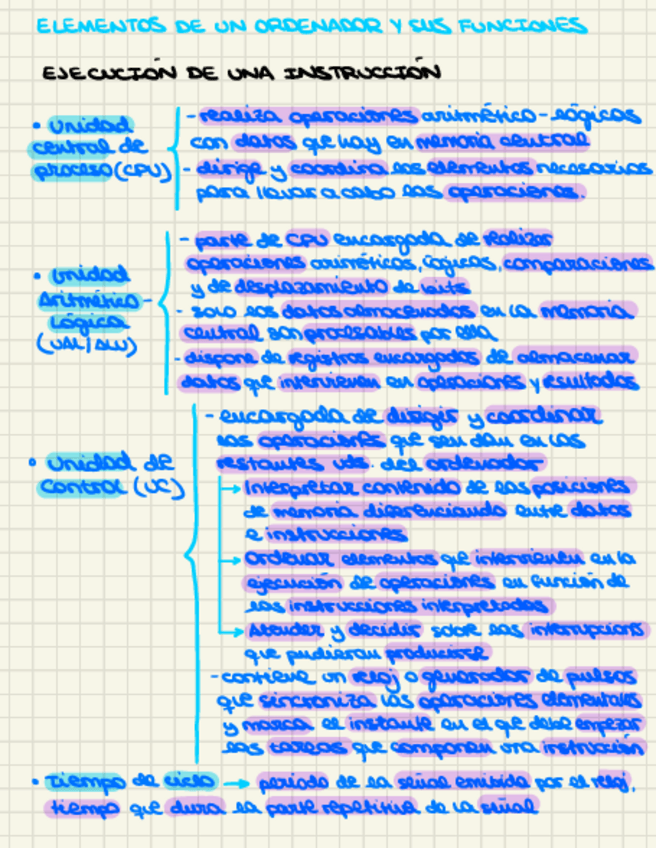 ELEMENTOS DE UN ORDENADOR Y SUS FUNCIONES
EJECUCIÓN DE UNA INSTRUCCIÓN
• Unidad
central de
proceso (CPU)
- realiza operaciones aritmético-lógicas
con datos que hay en memoria central
- dirige y coordina los elementos necesarios
para llevar a cabo las operaciones.
• Unidad
Aritmético-
Lógica
(UAL/ALU)
- parte de CPU encargada de realizar
operaciones aritméticas, lógicas, comparaciones
y de desplazamiento de bits
- solo los datos almacenados en la memoria
central son procesables por ella
- dispone de registros encargados de almacenar
datos que intervienen en operaciones y resultados
• Unidad de
Control (UC)
- encargada de dirigir y coordinar
las operaciones que se dan en las
restantes uds. del ordenador
→ Interpretar contenido de las posiciones
de memoria diferenciando entre datos
e instrucciones
→ Ordenar elementos que intervienen en la
ejecución de operaciones en función de
las instrucciones interpretadas
→ Atender y decidir sobre las interrupciones
que pudieran producirse
- contiene un reloj o generador de pulsos
que sincroniza las operaciones elementales
y marca el instante en el que debe empezar
las tareas que componen una instrucción
• Tiempo de ciclo → periodo de la señal emitida por el reloj,
tiempo que dura la parte repetitiva de la señal